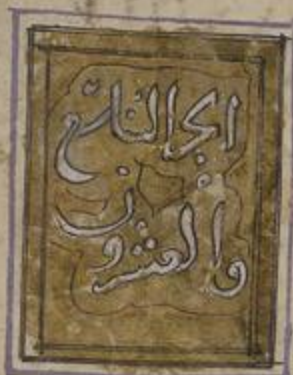 الجز التاسع
والعشرون